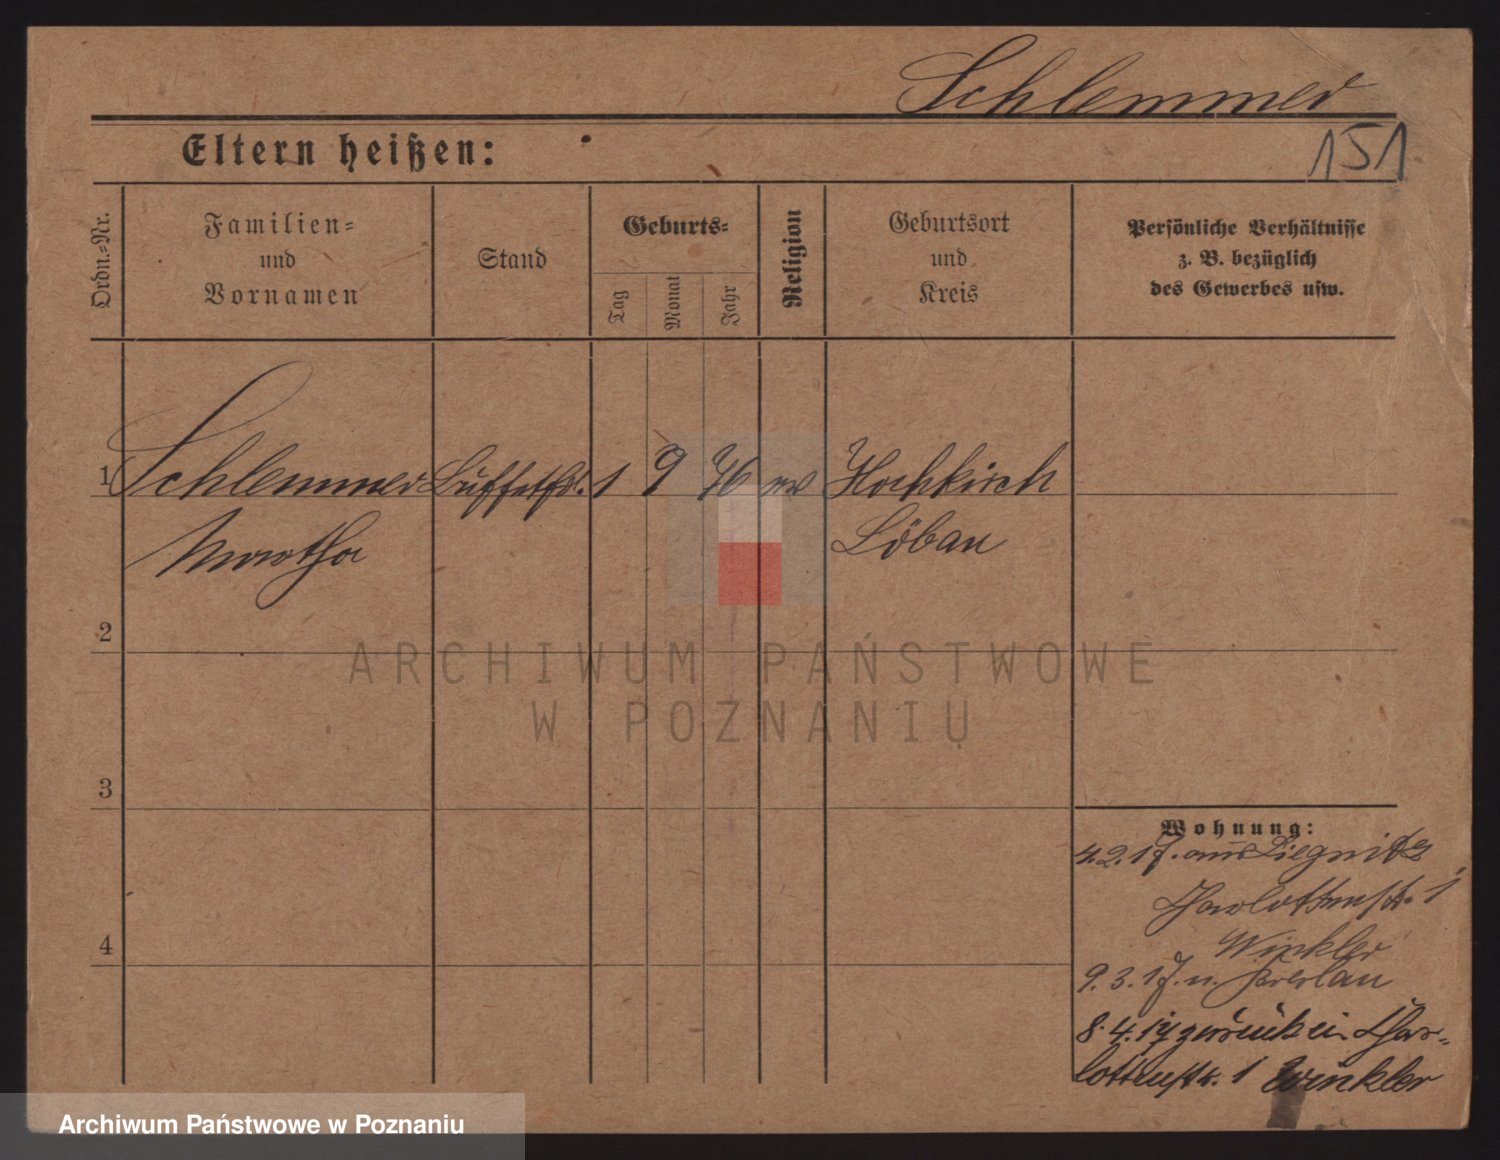 Schlemmer
151
Eltern heißen:
Ordn.-Nr.
Familien=
und
Vornamen
Stand
Geburts=
Tag
Monat
Jahr
Religion
Geburtsort
und
Kreis
Persönliche Verhältnisse
z. B. bezüglich
des Gewerbes usw.
1 Schlemmer Büffetfrl. 1 9 96 ev Hochkirch
Martha Löbau
2
ARCHIWUM PAŃSTWOWE
W POZNANIU
3
Wohnung:
4.2.17. aus Liegnitz
Charlottenstr. 1
4
Winkler
9.3.17. n. Breslau
8.4.17 zurück in Char=
lottenstr. 1 Winkler
Archiwum Państwowe w Poznaniu